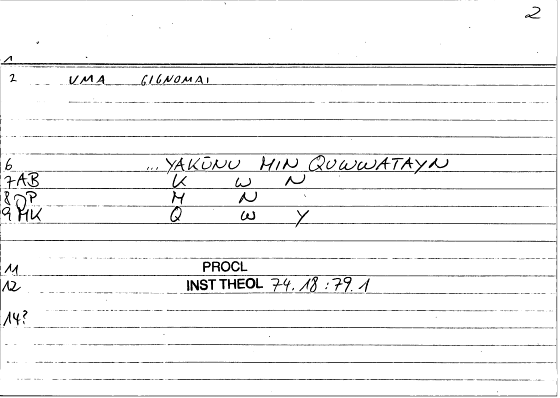 2
1
2 VMA GIGNOMAI
6 ...YAKŪNU MIN QUWWATAYN
7AB K W N
8DP M N
9MK Q W Y
11 PROCL
12 INST THEOL 74.18:79.1
14?